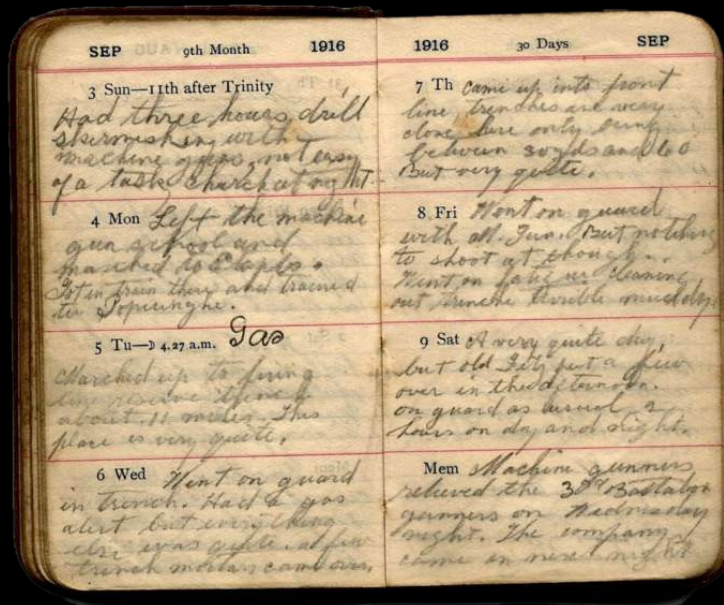 SEP 9th Month 1916
3 Sun—11th after Trinity
Had three hours drill
skirmishing with
machine guns, not easy
of a task Church at night.
4 Mon Left the machine
gun school and
marched to Etaples.
Got in train there and trained
to Popingne.
5 Tu—☽ 4.27 a.m. Gas
Marched up to firing
line reserve trench
about 11 miles. This
place is very quite.
6 Wed Went on guard
in trench. Had a gas
alert but everything
else was quite. a few
trench mortars came over.
1916 30 Days SEP
7 Th Came up into front
line, trenches are very
close here only being
between 30 yds and 60
But very quite.
8 Fri Went on guard
with at. Gun. But nothing
to shoot at though.
Went on fatigue cleaning
out trenches terrible muddy
9 Sat A very quite day,
but old Fritz put a few
over in the afternoon.
on guard as usual 2
hours on day and night.
Mem Machine gunners
relieved the 38th Battalion
gunners on Wednesday
night. The company
came in next night